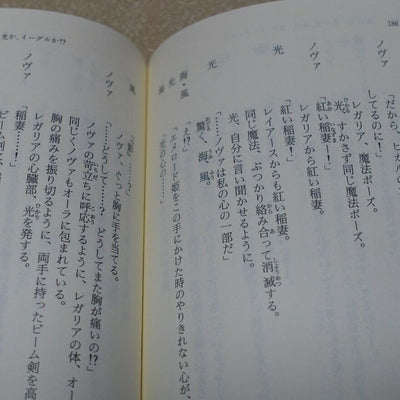 186
ノヴァ
「だから、ヒカル
してるのに!」
レガリア、魔法ポーズ。
光、すかさず同じ魔法ポーズ。
ノヴァ
「紅い稲妻!」
レガリアから紅い稲妻。
光
「紅い稲妻!」
レイアースからも紅い稲妻。
同じ魔法、ぶつかり絡み合って消滅する。
光、自分に言い聞かせるように、
光
「……ノヴァは私の心の一部だ」
驚く、海、風。
海・風
「え!?」
光
「エメロード姫をこの手にかけた時のやりきれない心が、
海
「光の心の……」
風
ノヴァ、ぐっと胸に手を当てる。
ノヴァ
「……どうして……? どうしてまた胸が痛いの!?」
ノヴァの苛立ちに呼応するように、レガリアの体、オー
同じくノヴァもオーラに包まれている。
胸の痛みを振り切るように、両手に持ったビーム剣を高
レガリアの心臓部、光を発する。
ノヴァ
「稲妻……!」
ビーム剣
光か、イーグルか!?